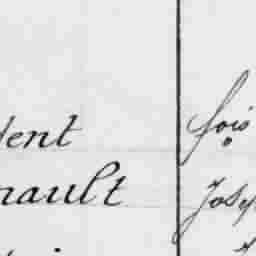 dent
nault
fois
Jose